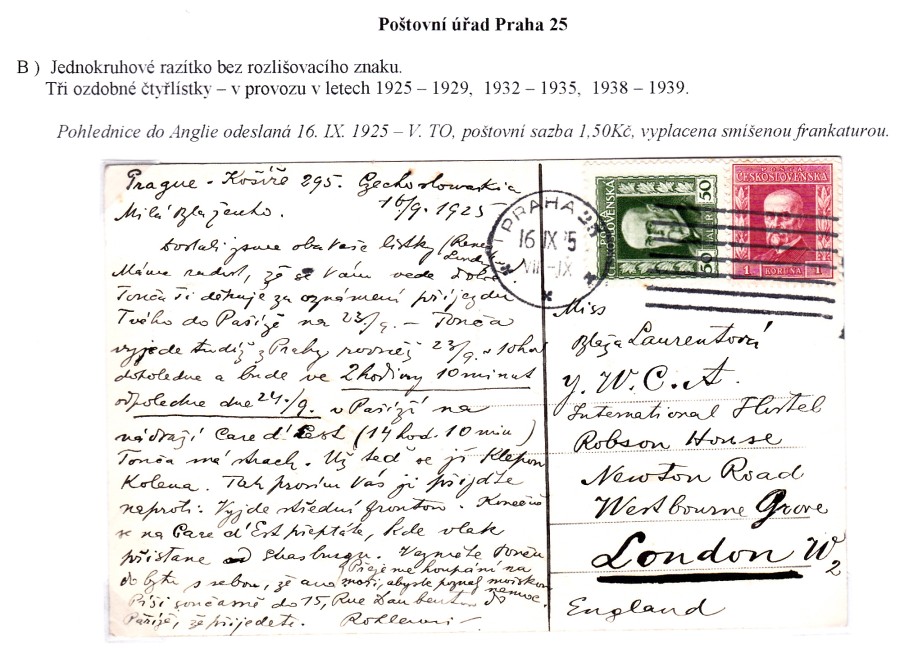 Poštovní úřad Praha 25
B ) Jednokruhové razítko bez rozlišovacího znaku.
Tři ozdobné čtyřlístky – v provozu v letech 1925 – 1929, 1932 – 1935, 1938 – 1939.
Pohlednice do Anglie odeslaná 16. IX. 1925 – V. TO, poštovní sazba 1,50Kč, vyplacena smíšenou frankaturou.
Prague - Košíře 295. Czechoslowakia
16/9. 1925
Milá Blaženko.
Dostali jsme oba Vaše lístky (
Máme radost, že se Vám vede dobře
Tonča Ti děkuje za oznámení příjezdu
Tvého do Paříže na 23/9. – Tonča
vyjede tudíž z Prahy rovněž 23/9. v 10 hod
dopoledne a bude ve 2 hodiny 10 minut
odpoledne dne 24./9. v Paříži na
nádraží Gare d' Est (14 hod. 10 min)
Tonča má strach. Už teď se jí klepou
kolena. Tak prosím Vás jí přijďte
naproti. Vyjde střední frontou. Konečně
se na Gare d'Est přeptáte, kde vlak
přistane od Strasburgu. Vezměte Tonču
do bytu s sebou, že ona
Přejeme houpání na
moři, abyste poznal mořskou
nemoc.
Píši současně do 15, Rue Daubenton
Paříže, že přijedete.
POŠTA
ČESKOSLOVENSKÁ
50
HALÉŘ
50
POŠTA
ČESKOSLOVENSKÁ
1 KORUNA 1
PRAHA 25
16 IX 25
VIII-IX
Miss
Blaža Laurentová
Y. W. C. A.
International Hostel
Robson House
Newton Road
Westbourne Grove
London W2
England